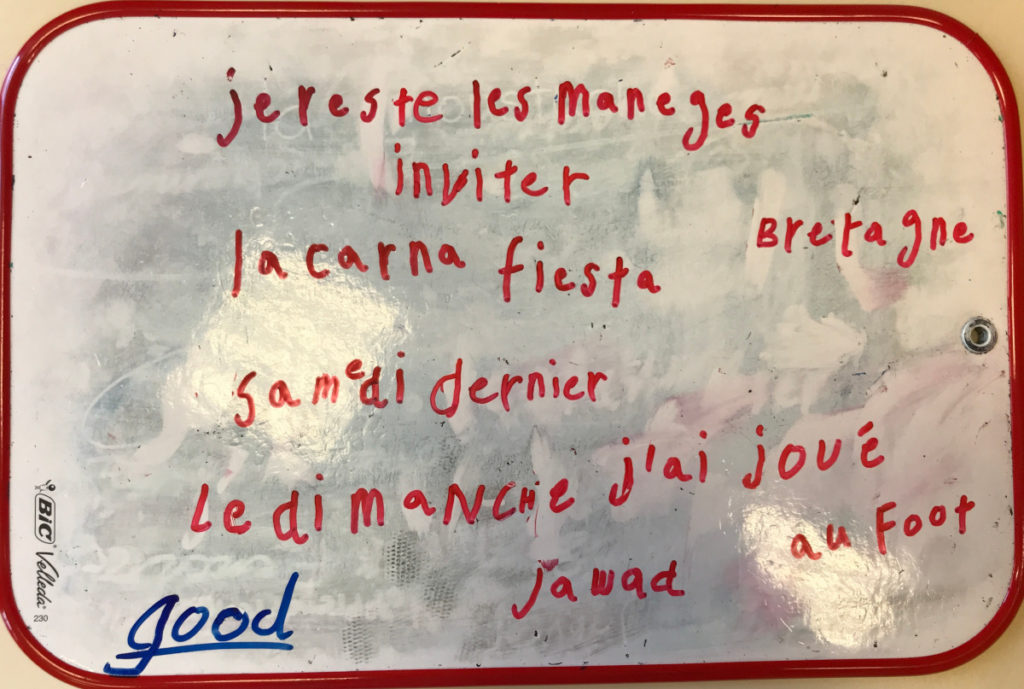 je reste les maneges
inviter
Bretagne
la carna fiesta
samedi dernier
Le dimaNCHe j'ai joué
au Foot
jawad
good
BIC Velleda
230